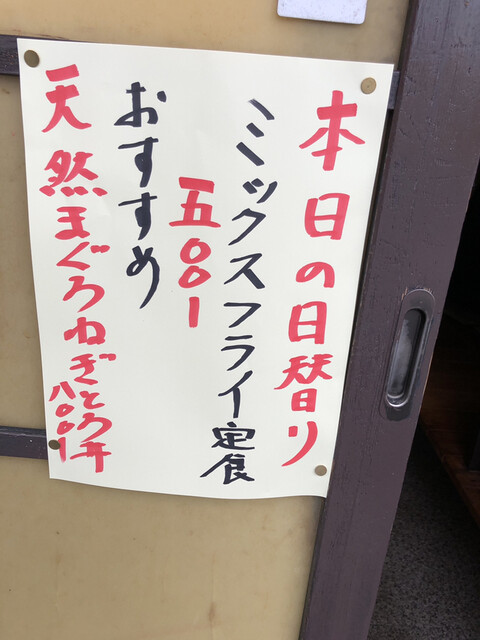 本日の日替り
ミックスフライ定食
五〇〇ー
おすすめ
天然まぐろねぎとろ丼
八〇〇ー